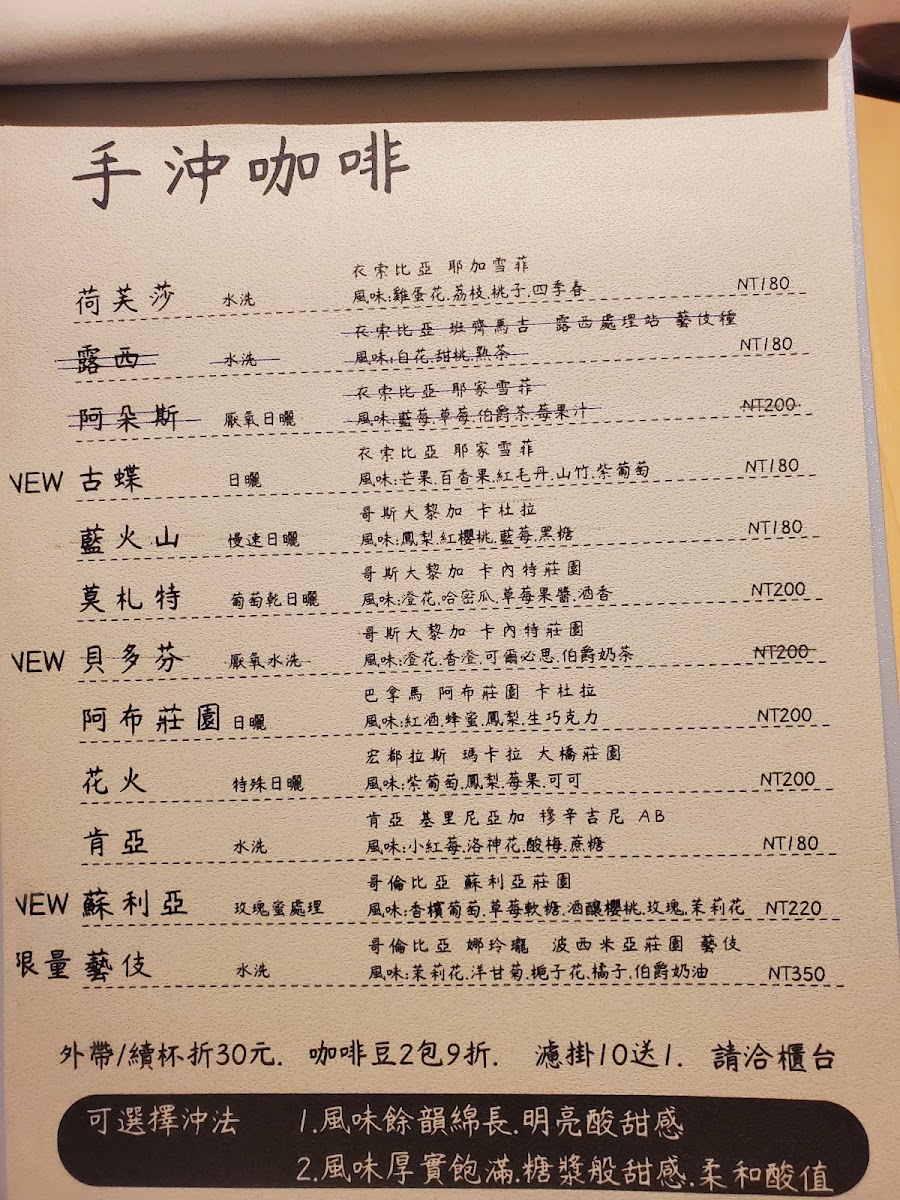 手沖咖啡
衣索比亞 耶加雪菲
荷芙莎 水洗 風味:雞蛋花.荔枝.桃子.四季春 NT180
衣索比亞 班齊馬吉 露西處理站 藝伎種
露西 水洗 風味:白花.甜桃.熟茶 NT180
衣索比亞 耶家雪菲
阿朵斯 厭氧日曬 風味:藍莓.草莓.伯爵茶.莓果汁 NT200
衣索比亞 耶家雪菲
NEW 古蝶 日曬 風味:芒果.百香果.紅毛丹.山竹.紫葡萄 NT180
哥斯大黎加 卡杜拉
藍火山 慢速日曬 風味:鳳梨.紅櫻桃.藍莓.黑糖 NT180
哥斯大黎加 卡內特莊園
莫札特 葡萄乾日曬 風味:澄花.哈密瓜.草莓果醬.酒香 NT200
哥斯大黎加 卡內特莊園
NEW 貝多芬 厭氧水洗 風味:澄花.香澄.可爾必思.伯爵奶茶 NT200
巴拿馬 阿布莊園 卡杜拉
阿布莊園 日曬 風味:紅酒.蜂蜜.鳳梨.生巧克力 NT200
宏都拉斯 瑪卡拉 大橋莊園
花火 特殊日曬 風味:紫葡萄.鳳梨.莓果.可可 NT200
肯亞 基里尼亞加 穆辛吉尼 AB
肯亞 水洗 風味:小紅莓.洛神花.酸梅.蔗糖 NT180
哥倫比亞 蘇利亞莊園
NEW 蘇利亞 玫瑰蜜處理 風味:香檳葡萄.草莓軟糖.酒釀櫻桃.玫瑰.茉莉花 NT220
哥倫比亞 娜玲瓏 波西米亞莊園 藝伎
限量 藝伎 水洗 風味:茉莉花.洋甘菊.梔子花.橘子.伯爵奶油 NT350
外帶/續杯折30元. 咖啡豆2包9折. 濾掛10送1. 請洽櫃台
可選擇沖法 1.風味餘韻綿長.明亮酸甜感
2.風味厚實飽滿.糖漿般甜感.柔和酸值